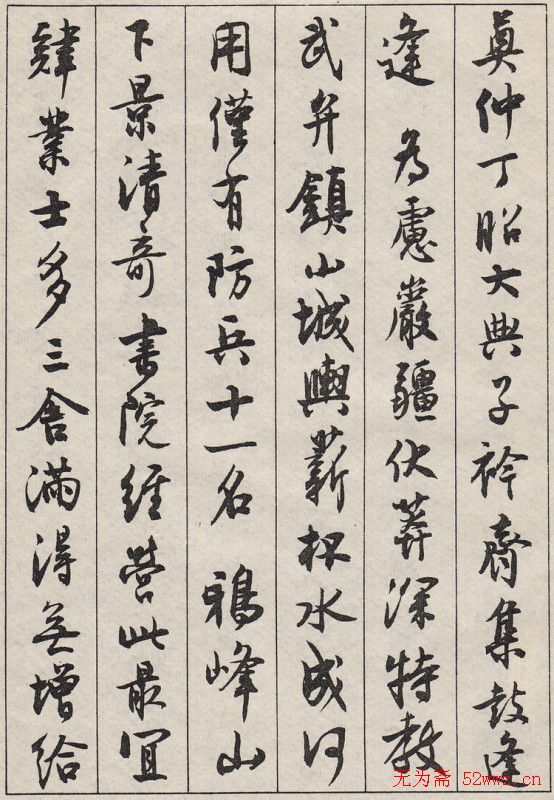 奠仲丁昭大典子衿齊集鼓逢
逢 為慮巖疆伏莽深特教
武弁鎮山城輿薪杯水成何
用僅有防兵十一名 鴉峰山
下景清奇書院經營此最宜
肄業士多三舍滿得無增給
无为斋 52wwz.cn